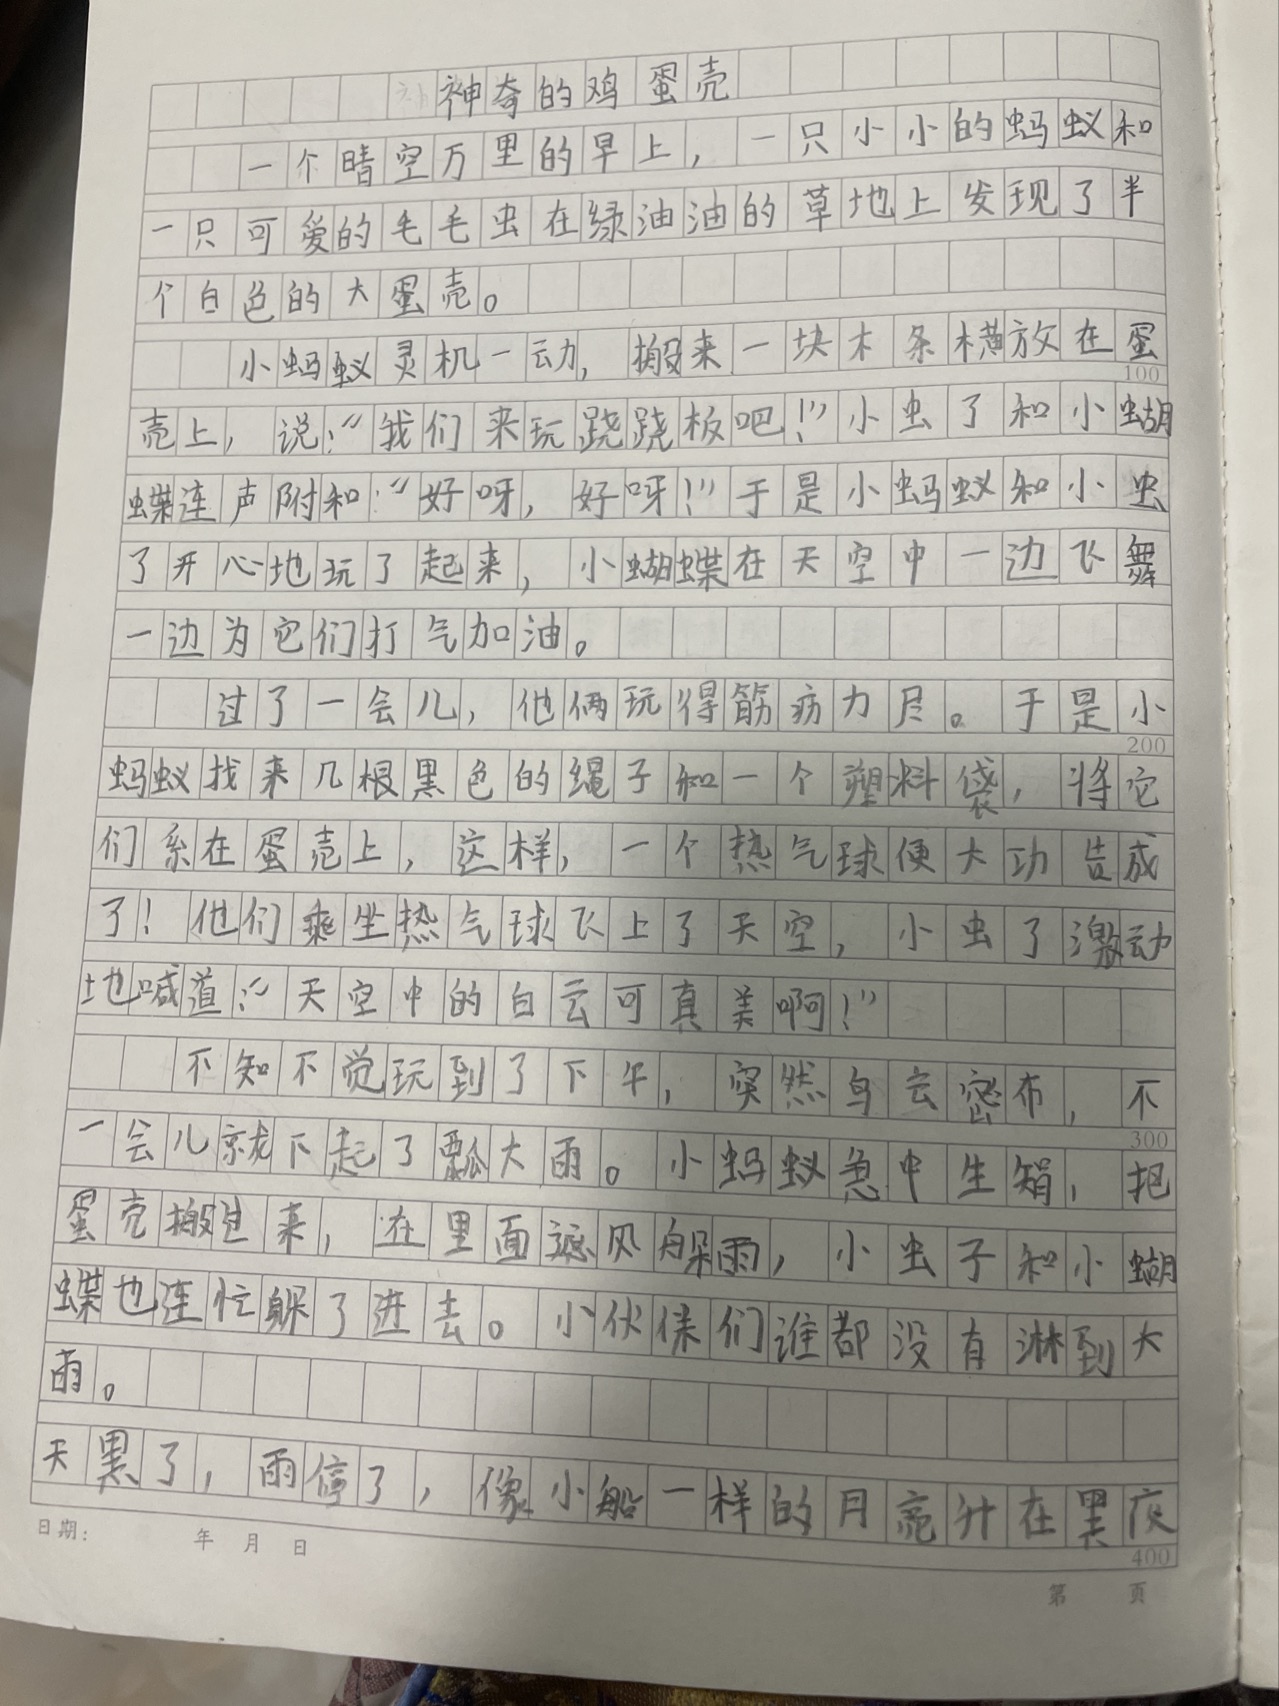 神奇的鸡蛋壳
一个晴空万里的早上，一只小小的蚂蚁和
一只可爱的毛毛虫在绿油油的草地上发现了半
个白色的大蛋壳。
小蚂蚁灵机一动，搬来一块木条横放在蛋
100
壳上，说：“我们来玩跷跷板吧！”小虫了和小蝴
蝶连声附和：“好呀，好呀！”于是小蚂蚁和小虫
了开心地玩了起来，小蝴蝶在天空中一边飞舞
一边为它们打气加油。
过了一会儿，他俩玩得筋疲力尽。于是小
200
蚂蚁找来几根黑色的绳子和一个塑料袋，将它
们系在蛋壳上，这样，一个热气球便大功告成
了！他们乘坐热气球飞上了天空，小虫了激动
地喊道：“天空中的白云可真美啊！”
不知不觉玩到了下午，突然乌云密布，不
300
一会儿就下起了瓢大雨。小蚂蚁急中生智，把
蛋壳搬过来，在里面遮风躲雨，小虫子和小蝴
蝶也连忙躲了进去。小伙伴们谁都没有淋到大
雨。
天黑了，雨停了，像小船一样的月亮升在黑夜
400
日期： 年 月 日
第 页